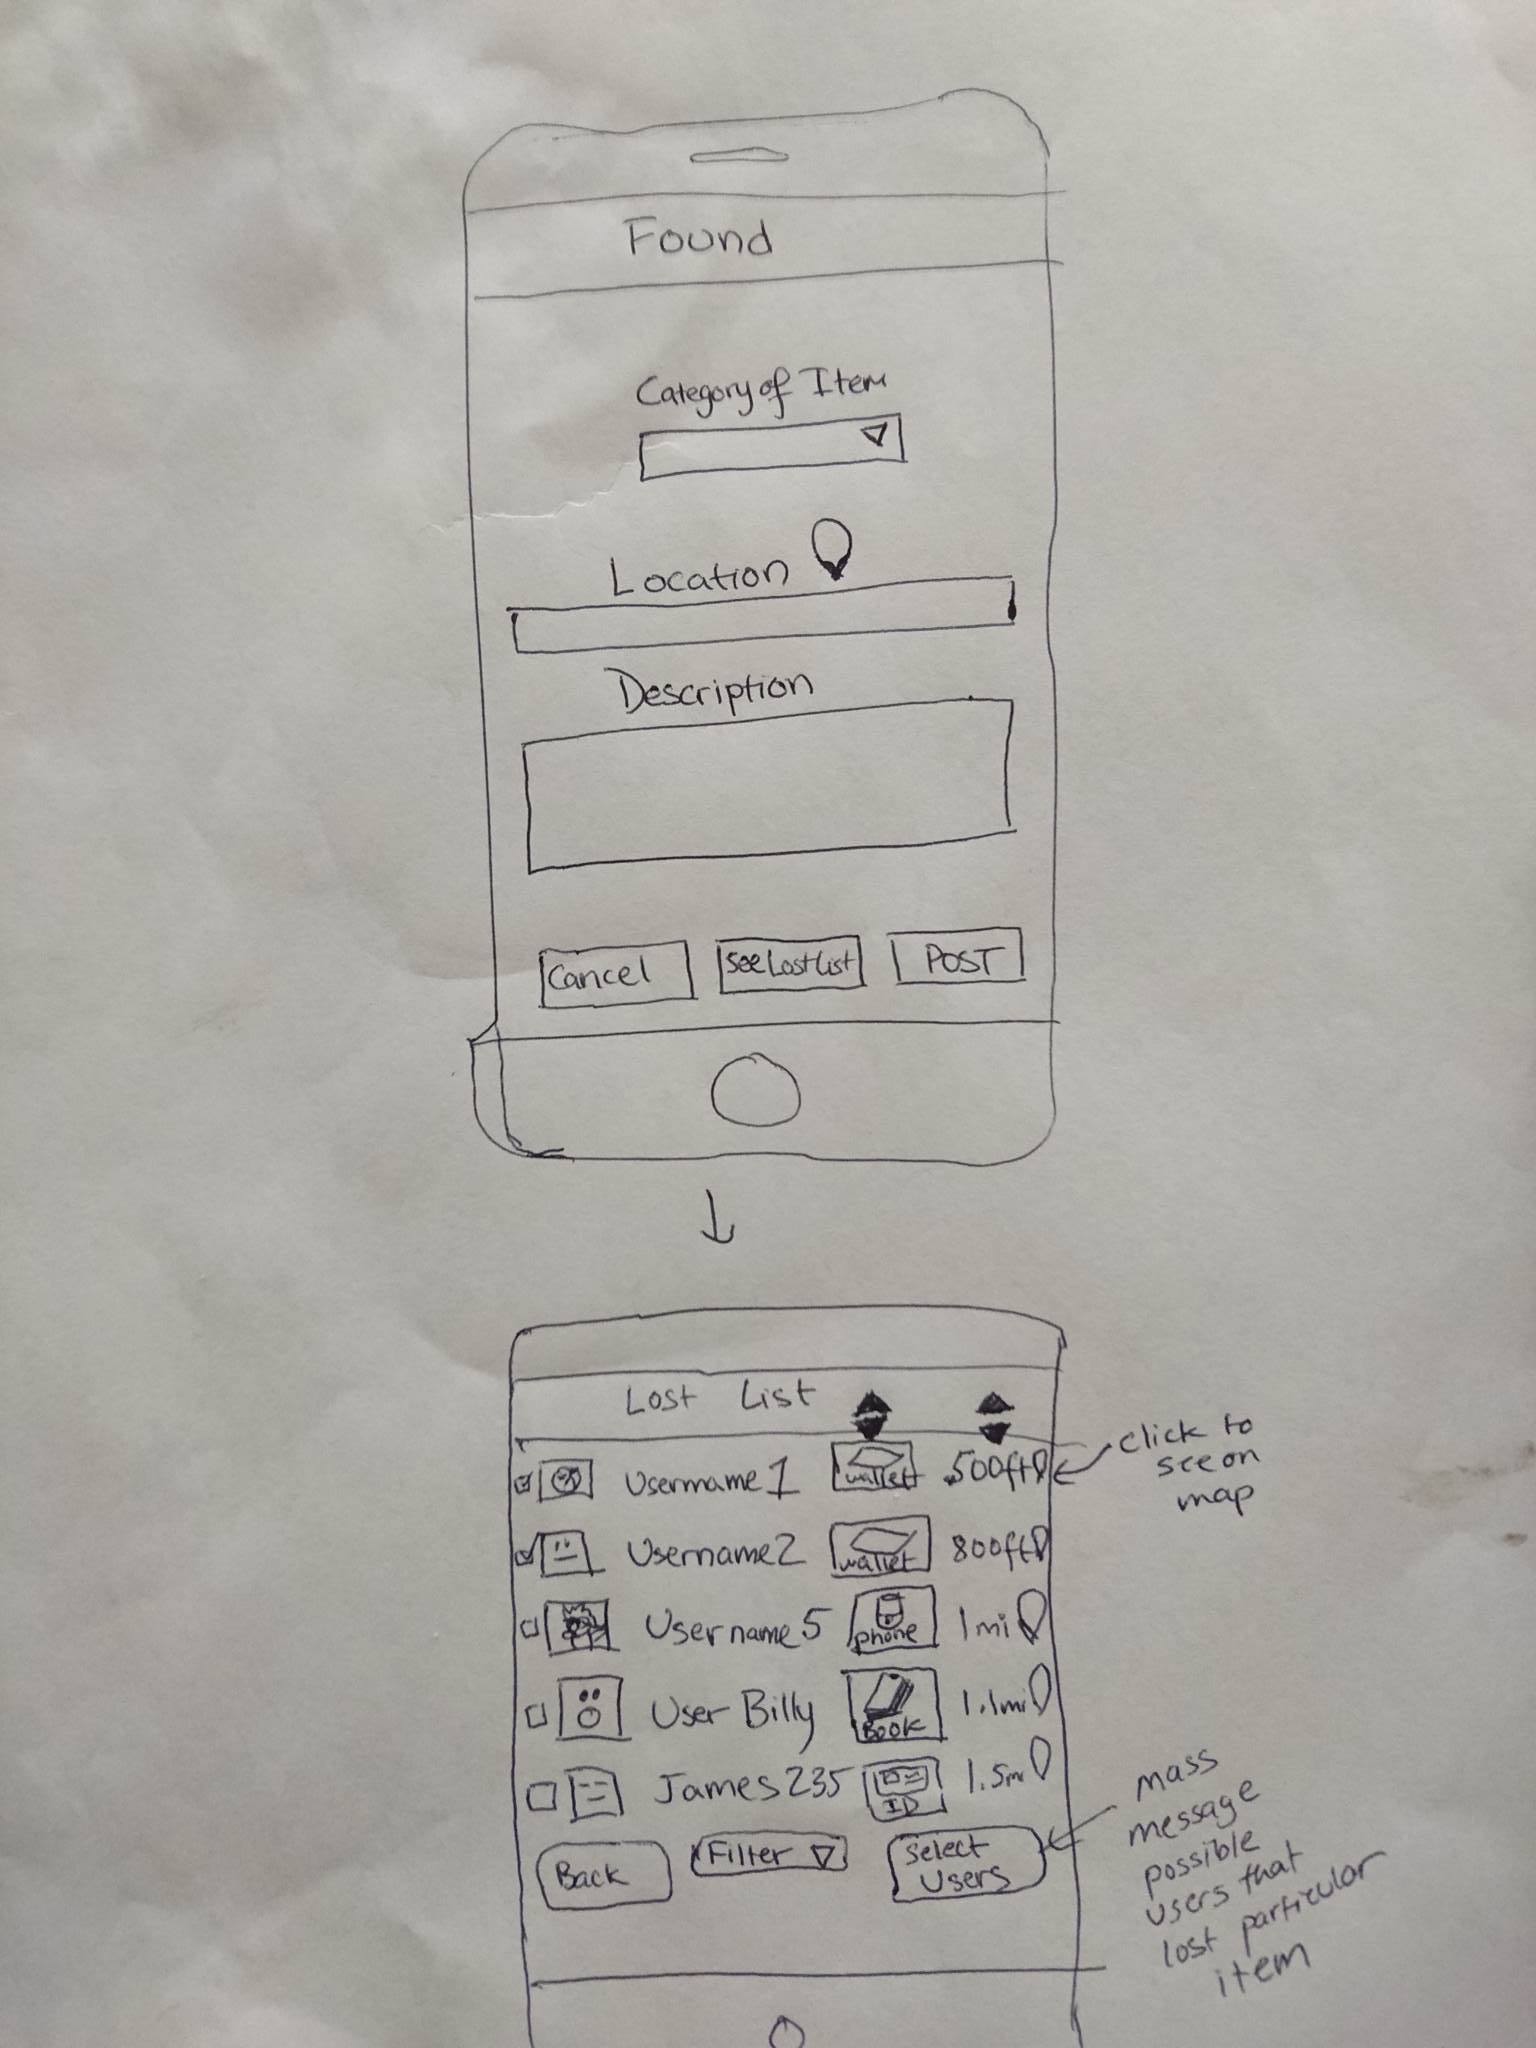 Found
Category of Item
Location
Description
Cancel
See Lost List
POST
Lost List
Username 1 wallet .500ft
click to
see on
map
Username 2 wallet 800ft
Username 5 phone 1mi
User Billy BOOK 1.1mi
James 235 ID 1.5mi
Back
Filter
Select
Users
mass
message
possible
users that
lost particular
item